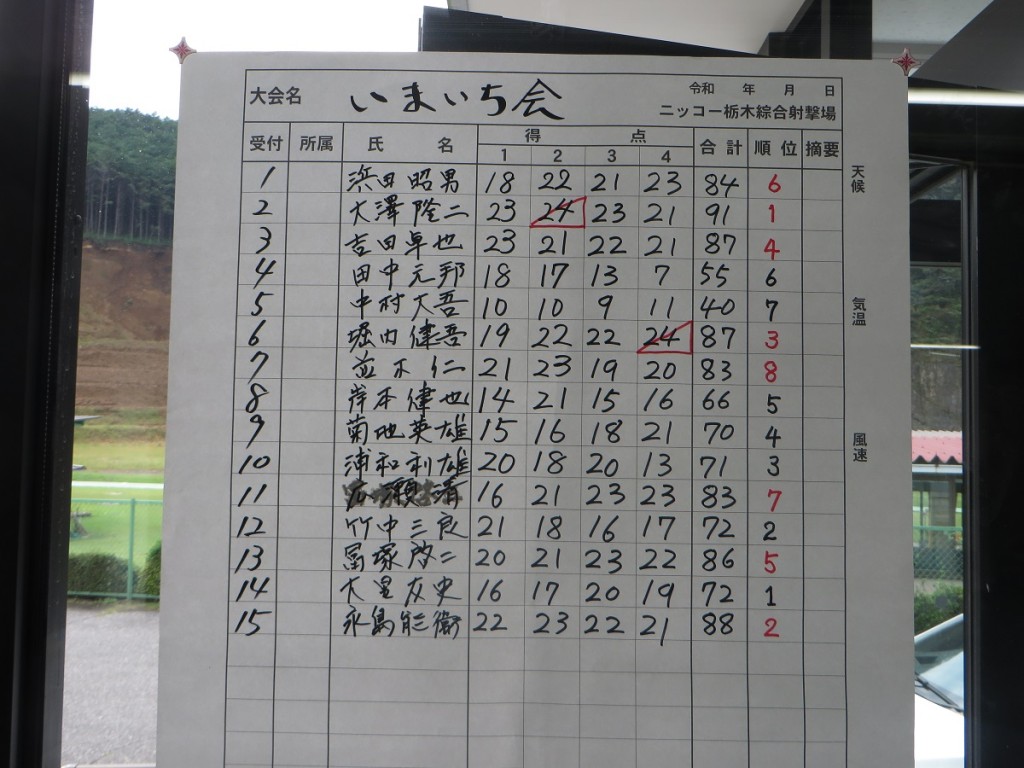 大会名 いまいち会 令和 年 月 日
ニッコー栃木綜合射撃場
受付 所属 氏 名 得 点 合計 順位 摘要
1 2 3 4
1 浜田昭男 18 22 21 23 84 6
2 大澤隆二 23 24 23 21 91 1
3 吉田卓也 23 21 22 21 87 4
4 田中元邦 18 17 13 7 55 6
5 中村大吾 10 10 9 11 40 7
6 堀内健吾 19 22 22 24 87 3
7 並木仁 21 23 19 20 83 8
8 岸本健也 14 21 15 16 66 5
9 菊地英雄 15 16 18 21 70 4
10 浦和利雄 20 18 20 13 71 3
11 16 21 23 23 83 7
12 竹中三良 21 18 16 17 72 2
13 冨塚啓二 20 21 23 22 86 5
14 大星友史 16 17 20 19 72 1
15 永島能衛 22 23 22 21 88 2
天候
気温
風速